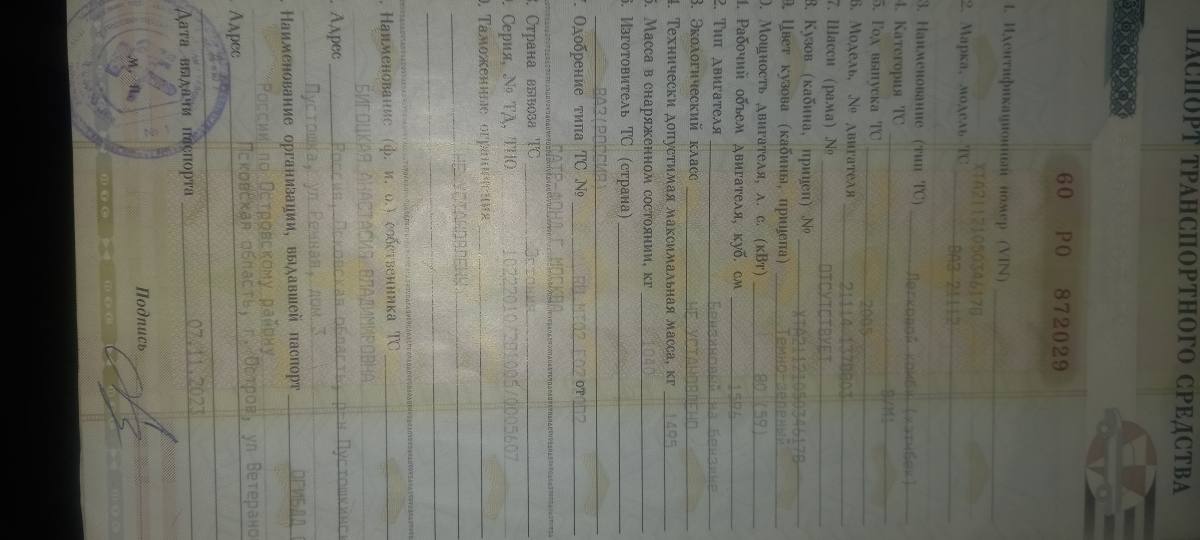 ПАСПОРТ ТРАНСПОРТНОГО СРЕДСТВА
60 РО 872029
1. Идентификационный номер (VIN)
2. Марка, модель ТС ВАЗ-21112
3. Наименование (тип ТС) Легковой
4. Категория ТС В/М1
5. Год выпуска ТС 2005
6. Модель, № двигателя 21114
7. Шасси (рама) № ОТСУТСТВУЕТ
8. Кузов (кабина, прицеп) №
9. Цвет кузова (кабины, прицепа) Темно-зеленый
0. Мощность двигателя, л. с. (кВт) 80 (59)
1. Рабочий объем двигателя, куб. см 1596
2. Тип двигателя Бензиновый на бензине
3. Экологический класс НЕ УСТАНОВЛЕНО
4. Технически допустимая максимальная масса, кг 1495
5. Масса в снаряженном состоянии, кг 1040
6. Изготовитель ТС (страна)
ВАЗ (РОССИЯ)
7. Одобрение типа ТС № от
8. Страна вывоза ТС Эстония
9. Серия, № ТД, ТПО
0. Таможенные ограничения
НЕ УСТАНОВЛЕНЫ
. Наименование (ф. и. о.) собственника ТС
ВЛАДИМИРОВНА
. Адрес Россия, Псковская область, р-н Пустошкинск
Пустошка, ул Речная, дом 3
. Наименование организации, выдавшей паспорт ОГИБДД
России по Островскому району
. Адрес Псковская область, г. Остров, ул Ветерано
Дата выдачи паспорта 07.11.2023
М. П.
Подпись